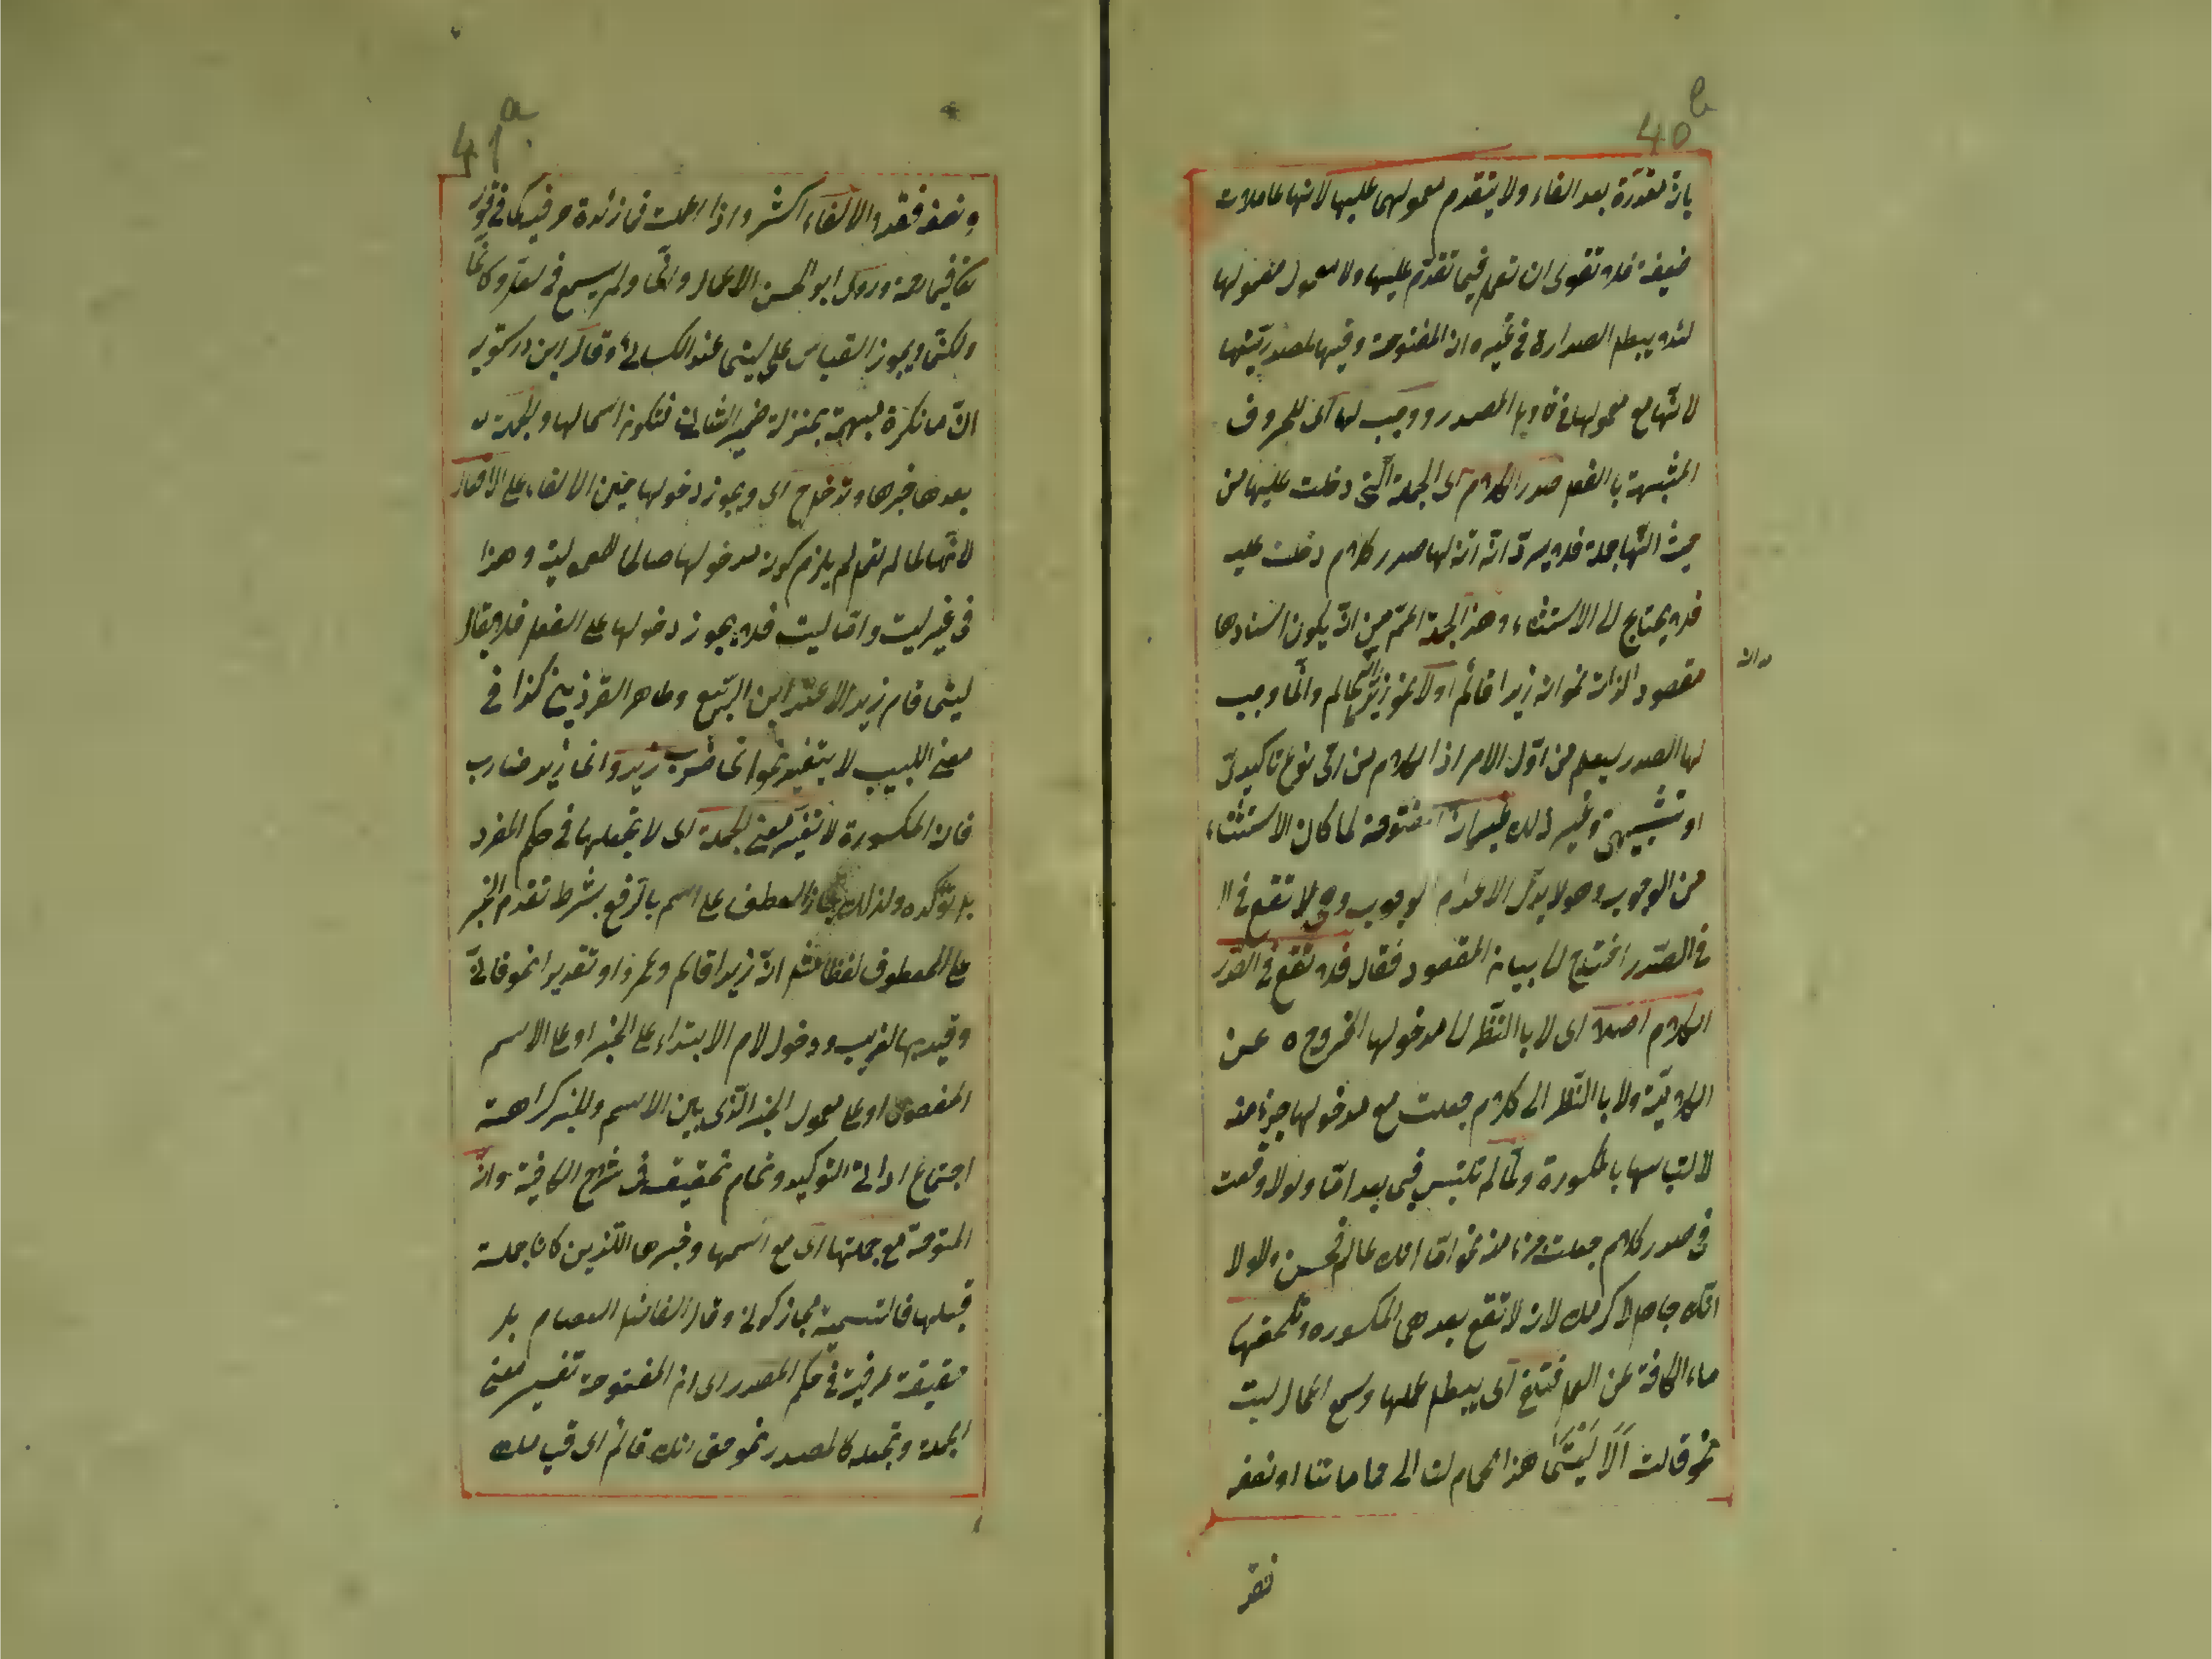 40b
بان مقدرة بعد الفاء ولا يتقدم معمولها عليها لانها عاملات
ضعيفة فلا تقوى ان تعمل فيما تقدم عليها ولا معمول معمولها
لئلا يبطل الصدارة في غير ان المفتوحة وفيها لمصدريتها
لانها مع معمولها في تأويل المصدر ووجب لها اى للحروف
المشبهة بالفعل صدر الكلام اى الجملة التى دخلت عليها من
حيث انها جملة فلا يرد انه ان لها صدر كلام دخلت عليه
فلا يحتاج الى الاستثناء وهذا الجملة اعم من ان يكون اسنادها
مقصود الذات نحو ان زيدا قائم اولا نحو زيد انه عالم وانما وجب
لها الصدر ليعلم من اول الامر اذا الكلام من اى نوع تاكيدى
او تشبيهى وغير ذلك غير ان المفتوحة لما كان الاستثناء
من الوجوب وهو لا يدل الا عدم الوجوب وهى لا تقع في ا
في الصدر احتاج الى بيان المقصود فقال فلا تقع في الصدر
الكلام اصلا اى لا بالنظر الى مدخولها الخروجه عن
الكلامية ولا بالنظر الى كلام جعلت مع مدخولها جزء منه
لالتباسها بالمكسورة ولما لم تلتبس فى بعد اما ولولا وقعت
في صدر كلام جعلت جزءا منه نحو اما انك عالم فحسن ولولا
انك جاهل لاكرمك لان لا تقع بعد هى المكسورة وتلحقها
ماء الكافة عن العمل فتلغى اى يبطل عملها وسمع اعمال ليت
نحو قالت اَلَا لَيْتَمَا هذا الحمام لنا الى حمامتنا او نصفه
فقد
41a
ونصفه فقد والالغاء اكثر واذا اعملت فما زائدة حرفية كما في قوله
تعالى فبما رحمة وروى ابو الحسن الاعمال وانما ولم يسمع في لعلما وكانما
ولكنما ويجوز القياس على ليتما عند الكسائى وقال ابن درستويه
ان ما نكرة مبهمة بمنزلة ضمير الشان فتكون اسما لها والجملة
بعدها خبرها وتدخل اى ويجوز دخولها حين الالغاء على الافعال
لانها لما لم تعمل لم يلزم كون مدخولها صالحا للمعمولية وهذا
في غير ليت واما ليت فلا يجوز دخولها على الفعل فلا يقال
ليتما قام زيد الا عند ابن الربيع وطاهر القزوينى كذا في
مغنى اللبيب لا يتغير نحو انما ضرب زيد وانما زيد ضارب
فان المكسورة لا تغير معنى الجملة اى لا تجعلها في حكم المفرد
بل تؤكده ولذلك جاز العطف على اسم بالرفع بشرط تقدم الخبر
على المعطوف لفظا مثل ان زيدا قائم وعمرو او تقديرا نحو فانى
وقيار بها لغريب ودخول لام الابتداء على الخبر او على الاسم
المفصول او على معمول الخبر الذى بين الاسم والخبر كراهة
اجتماع اداتى التوكيد وتمام تحقيقه في شرح الكافية وان
المفتوحة مع جملتها اى مع اسمها وخبرها اللذين كانا جملة
قبلها فالتسمية مجاز كونى وقال الفاضل العصام بل
حقيقة عرفية في حكم المصدر اى ان المفتوحة تغير معنى
الجملة وتجعله كالمصدر نحو حق انك قائم اى قيامك